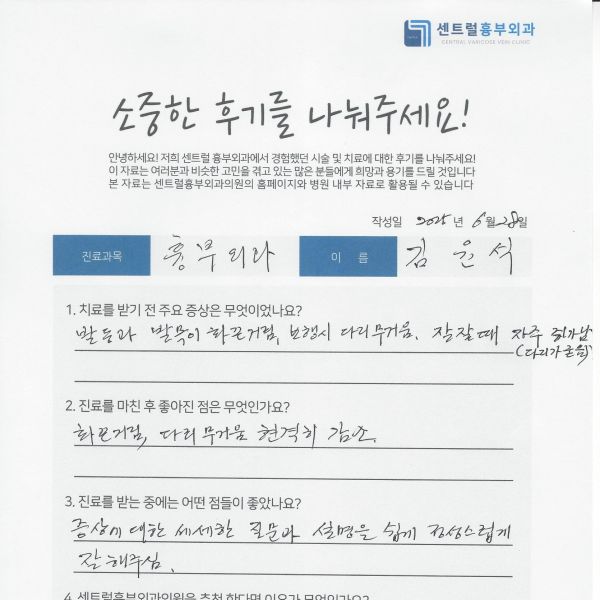 센트럴흉부외과
CENTRAL VARICOSE VEIN CLINIC
소중한 후기를 나눠주세요!
안녕하세요! 저희 센트럴 흉부외과에서 경험했던 시술 및 치료에 대한 후기를 나눠주세요!
이 자료는 여러분과 비슷한 고민을 겪고 있는 많은 분들에게 희망과 용기를 드릴 것입니다
본 자료는 센트럴흉부외과의원의 홈페이지와 병원 내부 자료로 활용될 수 있습니다
작성일 2025년 6월 28일
진료과목 흉부외과 이 름 김윤석
1. 치료를 받기 전 주요 증상은 무엇이었나요?
발등과 발목이 화끈거림, 보행시 다리무거움. 잠잘때 자주 쥐가남
(다리가 굳음)
2. 진료를 마친 후 좋아진 점은 무엇인가요?
화끈거림, 다리무거움 현격히 감소.
3. 진료를 받는 중에는 어떤 점들이 좋았나요?
증상에 대한 세세한 질문과 설명을 쉽게 정성스럽게
잘 해주심.
4. 센트럴흉부외과의원을 추천 한다면 이유가 무엇인가요?